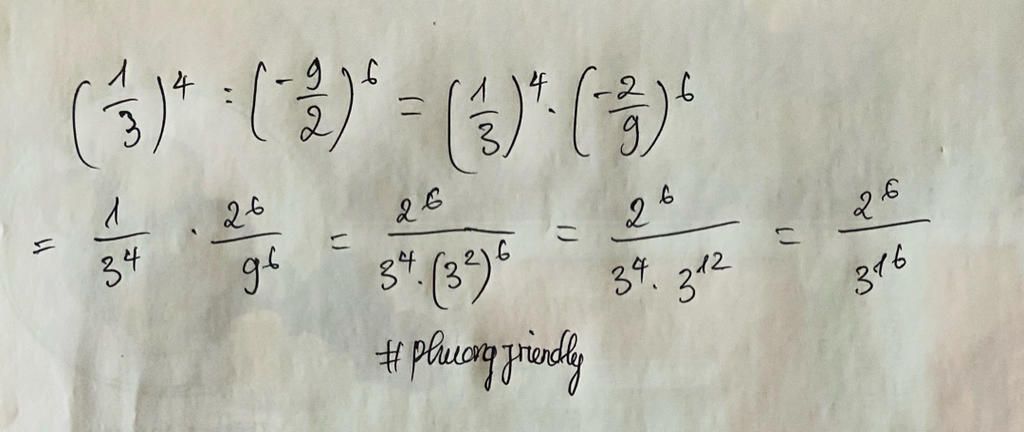 (1/3)^4 : (-9/2)^6 = (1/3)^4 . (-2/9)^6
= 1/3^4 . 2^6/9^6 = 2^6/3^4.(3^2)^6 = 2^6/3^4.3^12 = 2^6/3^16
# phuong friendly